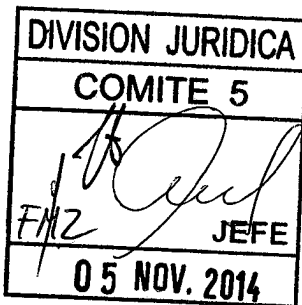 DIVISION JURIDICA
COMITE 5
JEFE
05 NOV. 2014